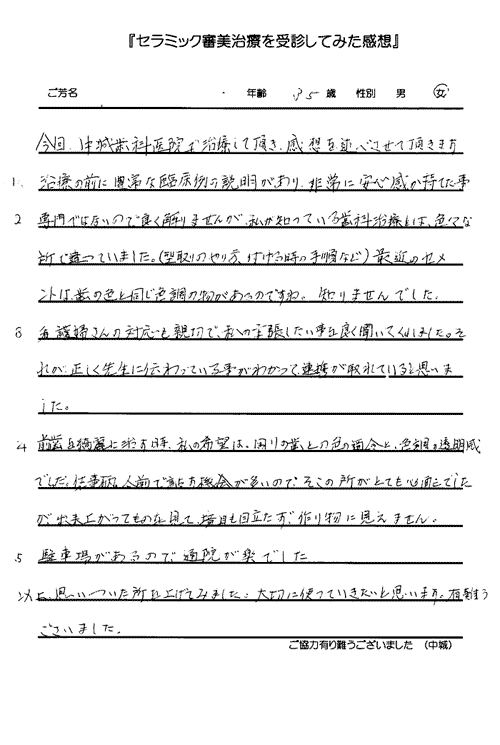 『セラミック審美治療を受診してみた感想』
ご芳名 ・ 年齢 35 歳 性別 男 女
今回、中城歯科医院で治療して頂き、感想を述べさせて頂きます
1. 治療の前に豊富な臨床例の説明があり、非常に安心感が持てた事
2 専門ではないので良く解りませんが、私が知っている歯科治療とは、色々な
所で違っていました。(型取りのやり方、付ける時の手順など) 最近のセメ
ントは歯の色と同じ色調の物があるのですね。知りませんでした。
3 看護婦さんの対応も親切で、私の主張したい事を良く聞いてくれました。そ
れが、正しく先生に伝わっている事がわかって、連携が取れていると思いま
した。
4 前歯を綺麗に治す時、私の希望は、周りの歯との色の具合と、色調の透明感
でした。仕事柄、人前で話す機会が多いので、そこの所がとても心配でした
が、出来上がってものを見て、境目も目立たず、作り物に見えません。
5 駐車場があるので、通院が楽でした
以上、思いついた所を上げてみました。大切に使っていきたいと思います。有難う
ございました。
ご協力有り難うございました （中城）